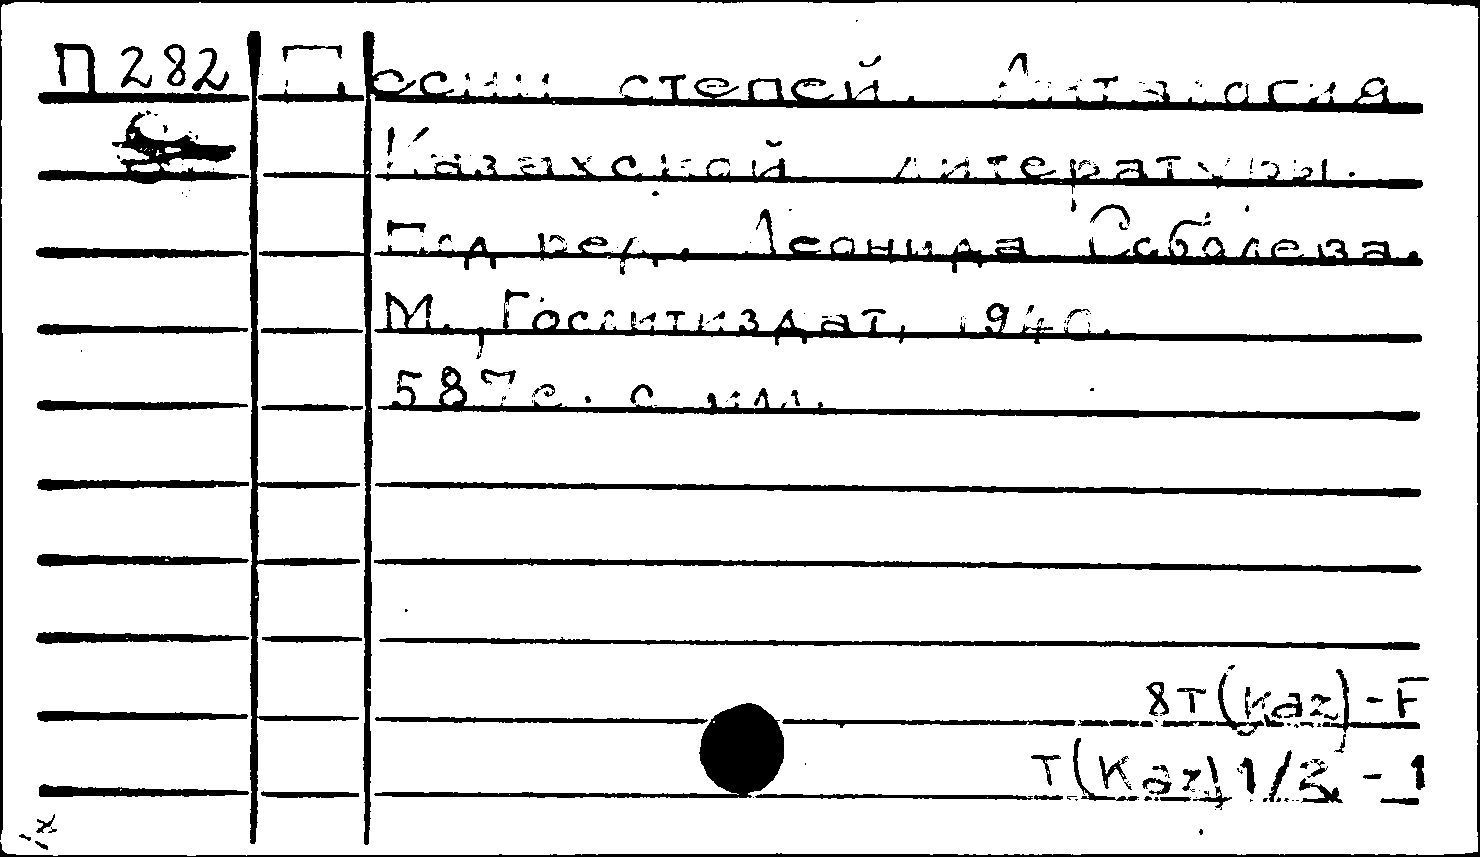 П 282 Песни степей. Анталогия
Казахской литературы.
Под ред. Леонида Соболева.
М., Гослитиздат, 1940.
587с. с илл.
8т(kaz)-F
Т(Kaz)1/2 - 1